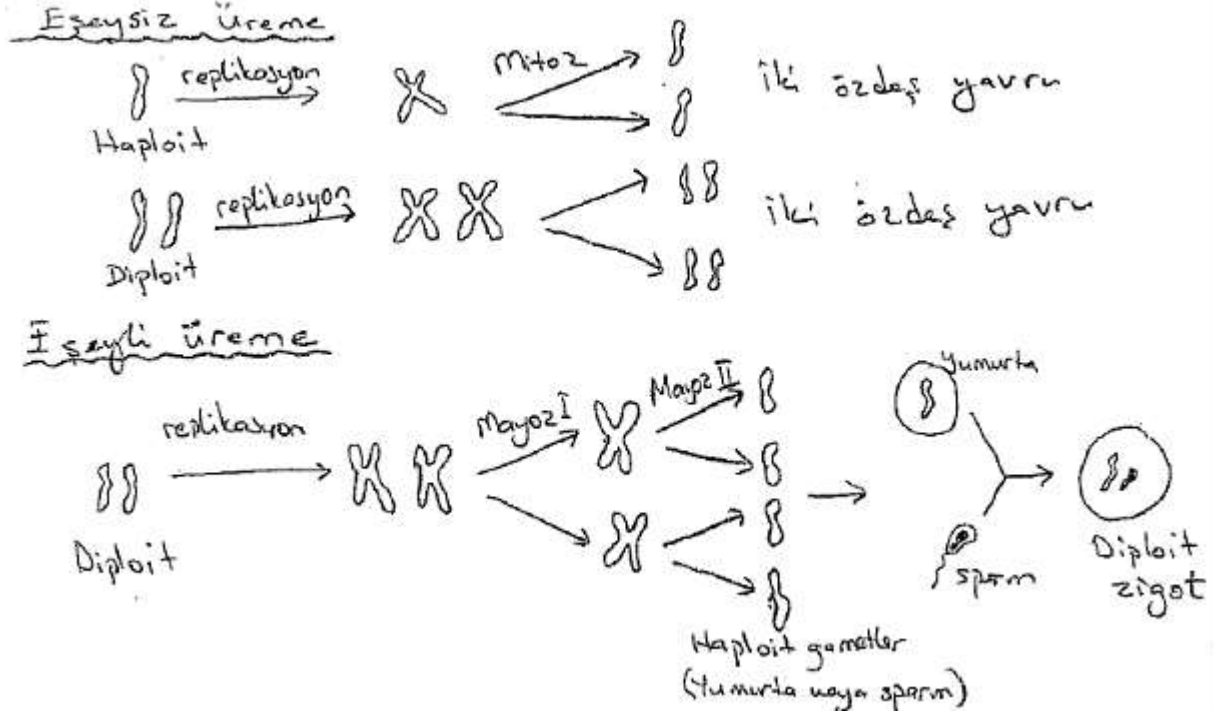 Eşeysiz üreme
replikasyon
Mitoz
iki özdeş yavru
Haploit
replikasyon
iki özdeş yavru
Diploit
Eşeyli üreme
replikasyon
Mayoz I
Mayoz II
Yumurta
Diploit
sperm
Diploit
zigot
Haploit gametler
(Yumurta veya sperm)